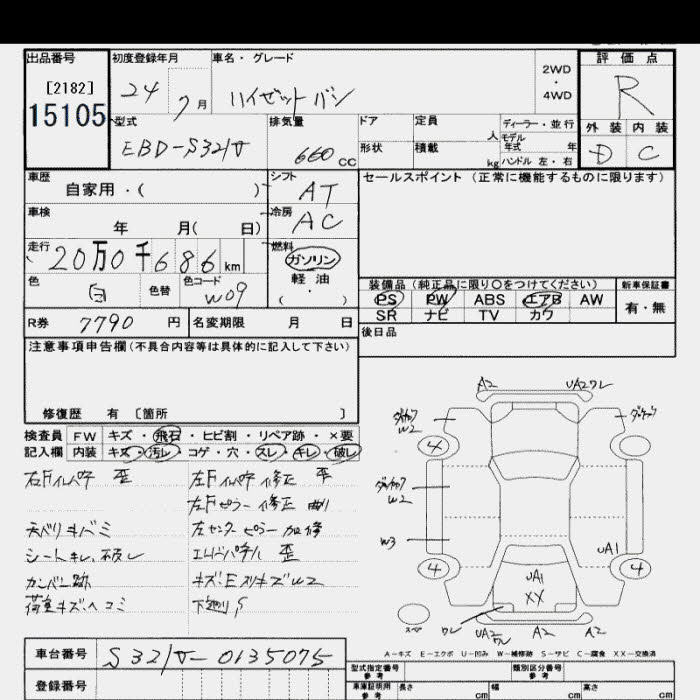 出品番号 初度登録年月 車名・グレード 2WD・4WD 評価点
[2182] 24 7月 ハイゼットバン R
15105 型式 排気量 ドア 定員 人 ディーラー・並行 外装 内装
EBD-S321V 660 CC 形状 積載 kg モデル年式 年 ハンドル 左・右 D C
車歴 シフト セールスポイント (正常に機能するものに限ります)
自家用・( ) AT
車検 冷房
年 月( 日) AC
走行 燃料
20万0千686km ガソリン
色 色替 色コード 軽油 装備品 (純正品に限り○をつけてください) 新車保証書
白 W09 ・ ( ) PS PW ABS エアB AW 有・無
R券 7790 円 名変期限 月 日 SR ナビ TV カワ
注意事項申告欄(不具合内容等は具体的に記入して下さい) 後日品
修復歴 有 〔箇所 〕
検査員 FW キズ・飛石・ヒビ割・リペア跡・×要
記入欄 内装 キズ・汚レ・コゲ・穴・スレ・キレ・破レ
右Fインパネ 歪 左Fインパネ 修正 歪
左Fピラー 修正 曲り
天バリキバミ 左センターピラー 加修
シートキレ、破レ エンドパネル 歪
カンバン跡 キズ・Eスリキズ W2
荷室キズ、ヘコミ 下廻りS
A2 UA2ワレ
W2
4
W2
W3 UA1
4 UA1 4
XX
ワレ UA2 A2 A2
スペ
A-キズ E-エクボ U-凹み W-補修跡 S-サビ C-腐食 XX-交換済
車台番号 S321V-0135075 型式指定番号 参考 類別区分番号 参考
登録番号 車庫証明用 参考 長さ cm 幅 cm 高さ cm